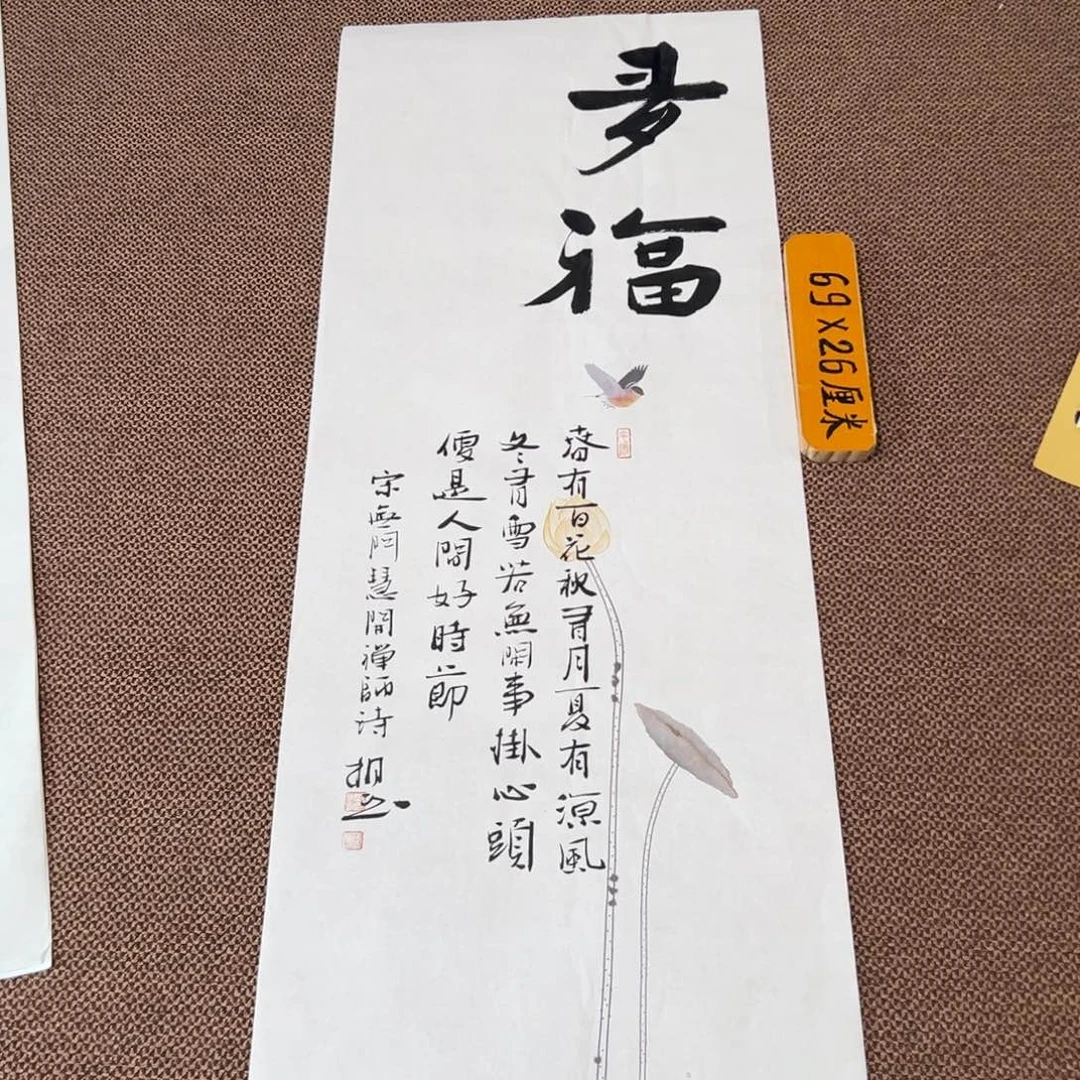 有福
春有百花秋有月夏有涼風
冬有雪若無閑事掛心頭
便是人間好時節
宋無門慧開禪師诗
69x26厘米